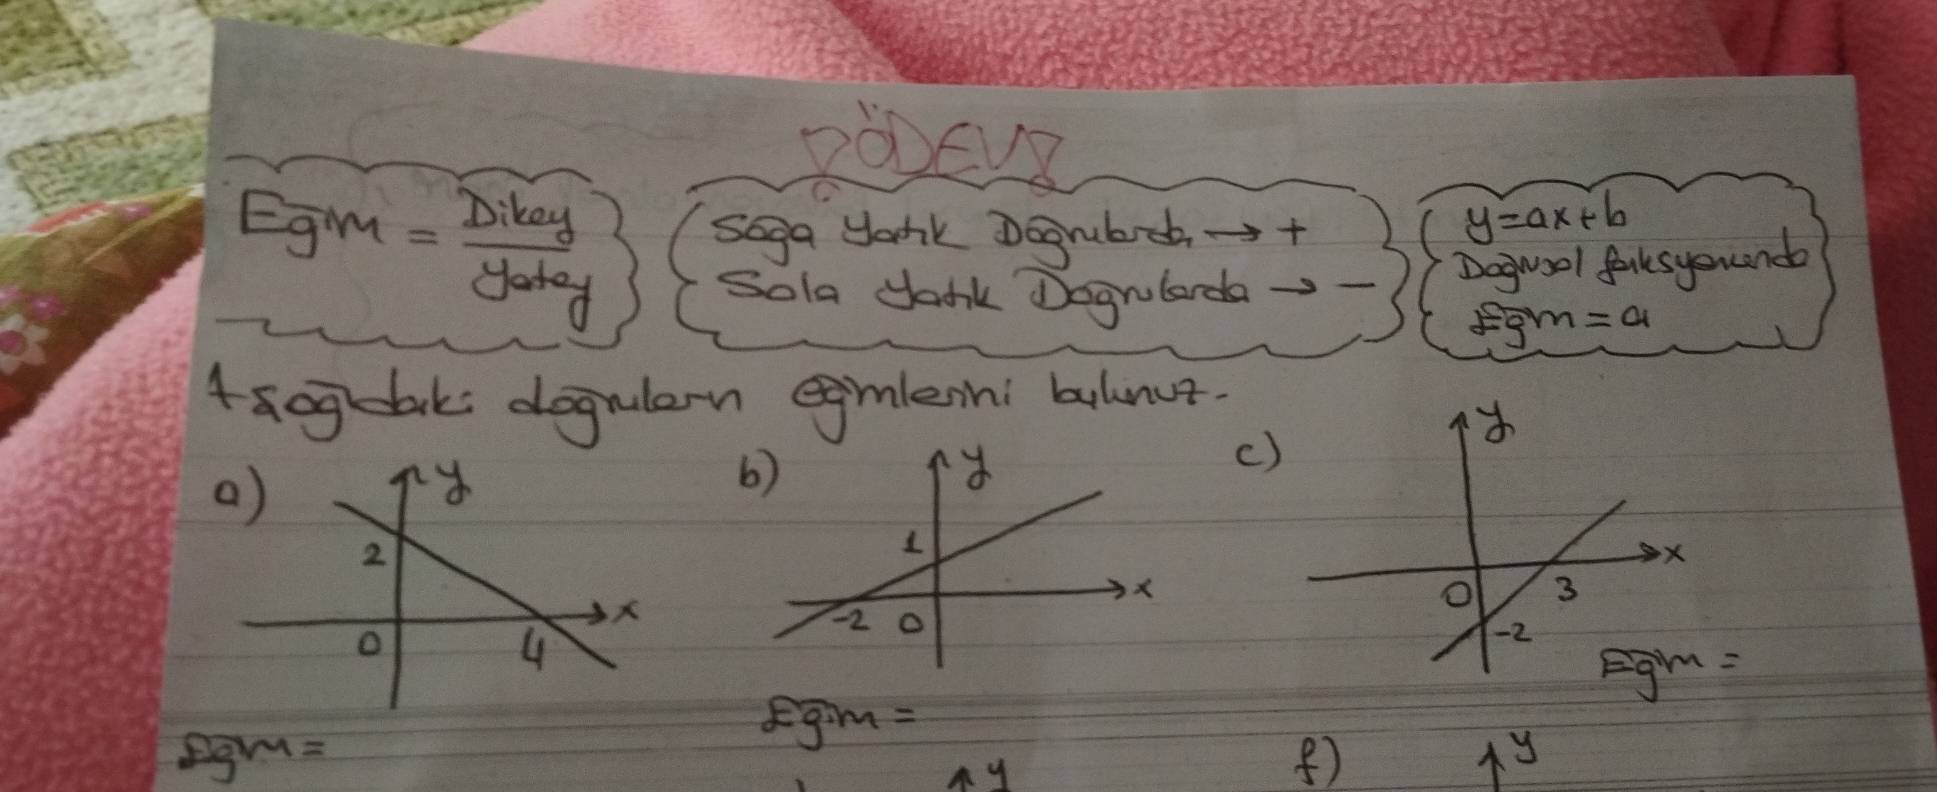 ÖDEV
Eğim = Dikey / Yatay
Sağa Yatık Doğrularda → +
Sola Yatık Doğrularda → -
y=ax+b
Doğrusal fonksiyonunda
Eğim = a
Aşağıdaki doğruların eğimlerini bulunuz.
a) y 2 0 4 x
Eğim =
b) y 1 -2 0 x
Eğim =
c) y x 0 3 -2
Eğim =
y
f) y